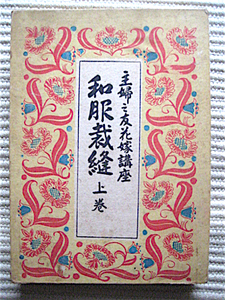 主婦之友花嫁講座
和服裁縫
上巻